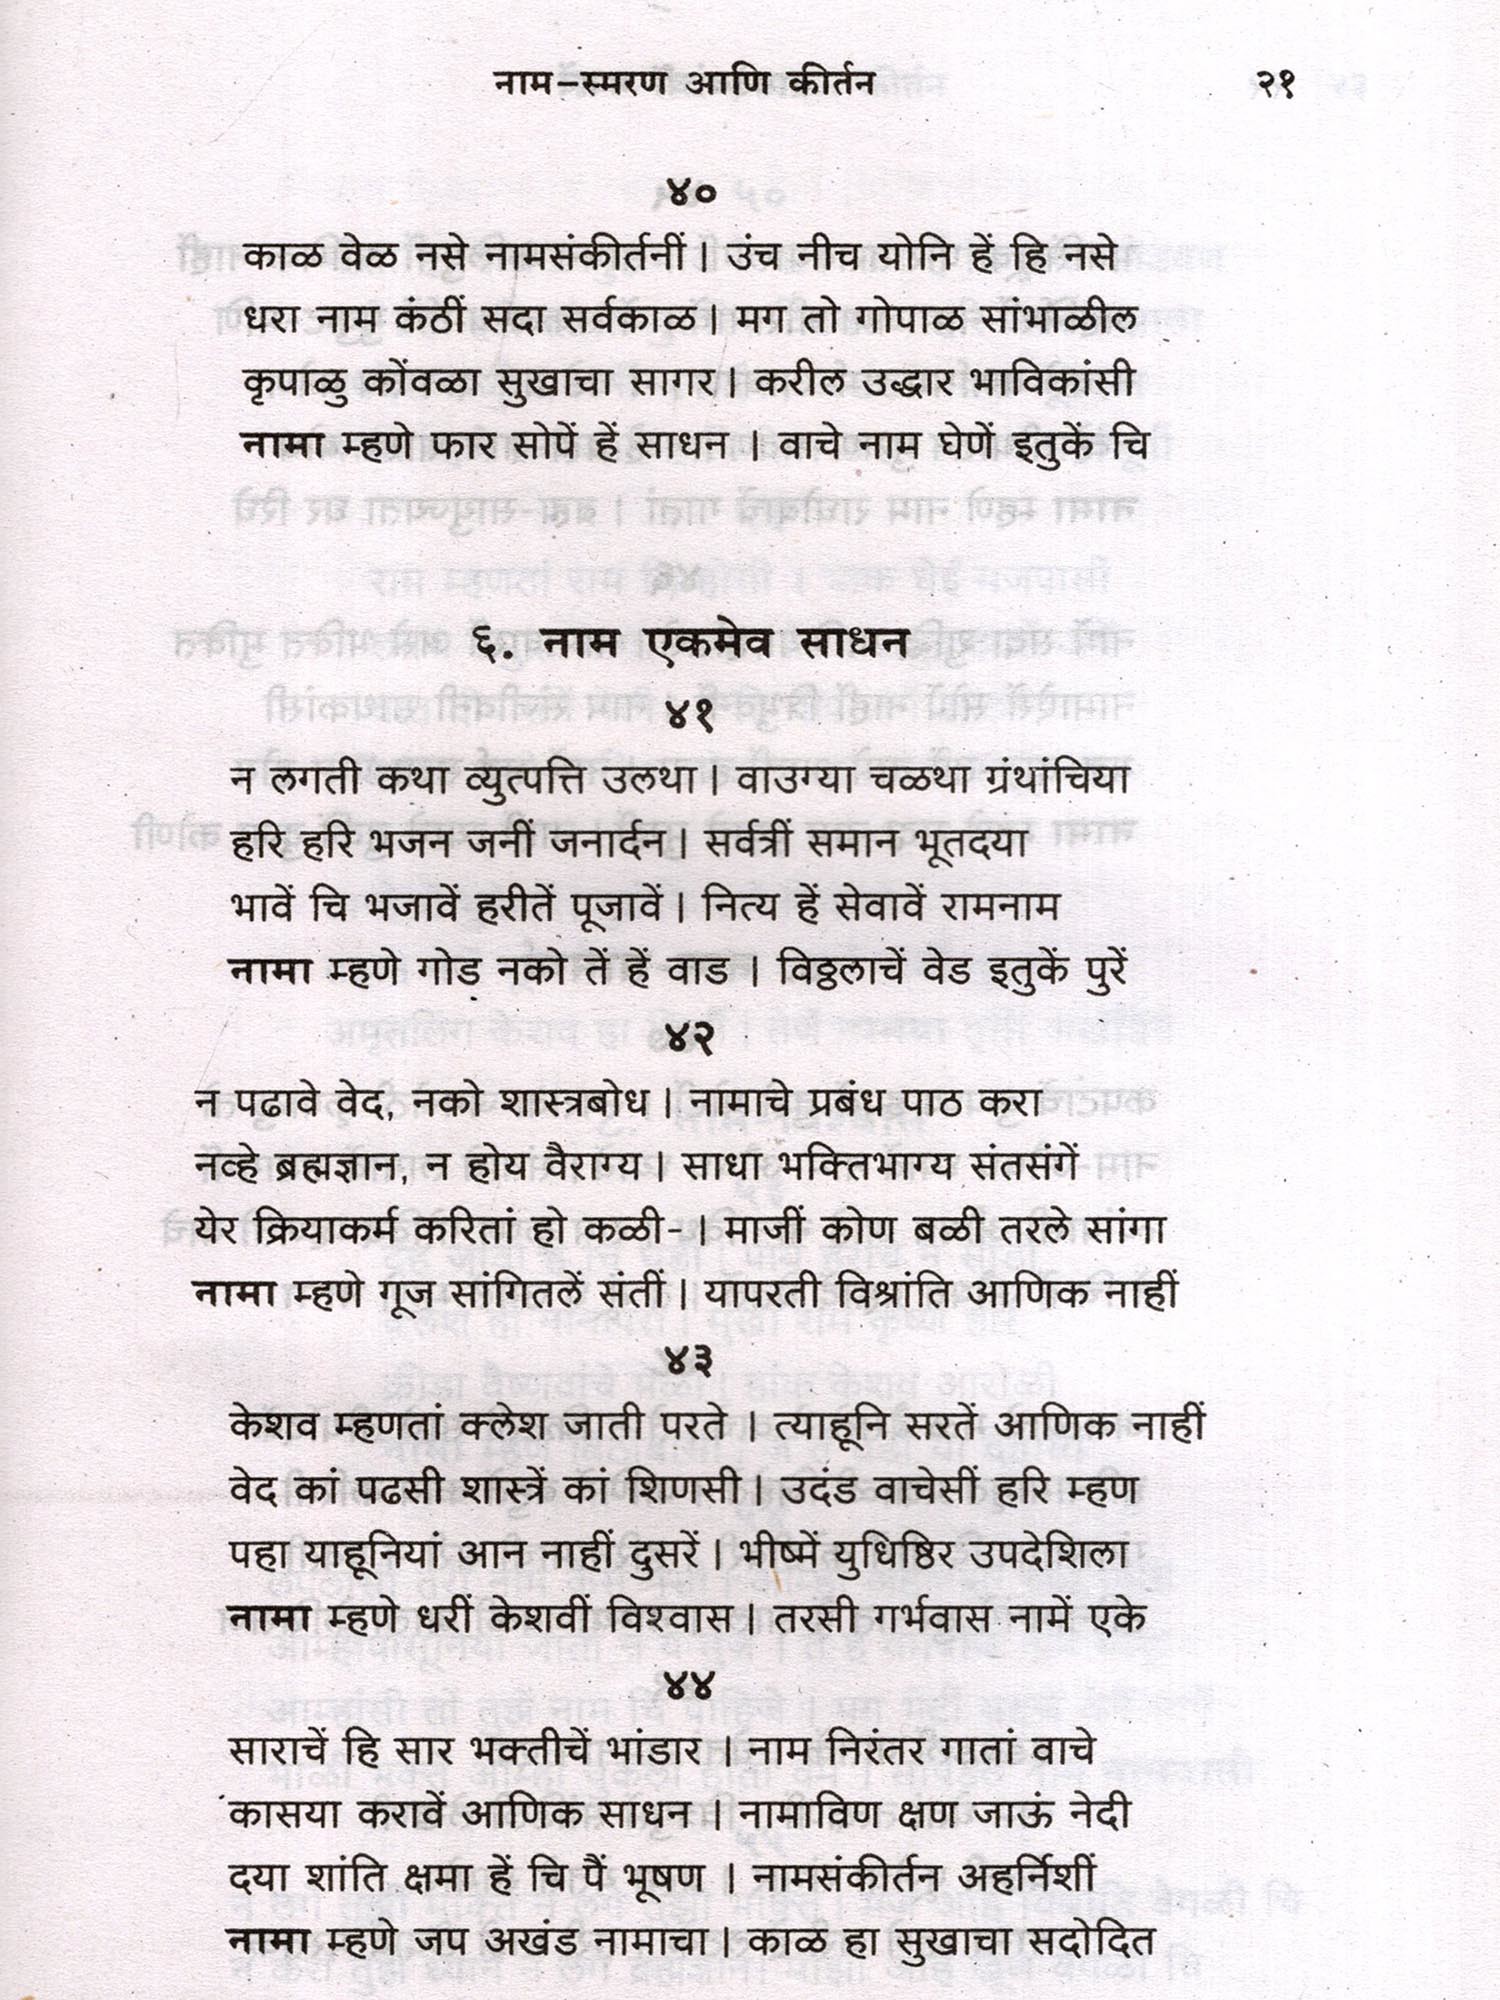 नाम-स्मरण आणि कीर्तन २१
४०
काळ वेळ नसे नामसंकीर्तनीं। उंच नीच योनि हें हि नसे
धरा नाम कंठीं सदा सर्वकाळ। मग तो गोपाळ सांभाळील
कृपाळु कोंवळा सुखाचा सागर। करील उद्धार भाविकांसी
नामा म्हणे फार सोपें हें साधन । वाचे नाम घेणें इतुकें चि
६. नाम एकमेव साधन
४१
न लगती कथा व्युत्पत्ति उलथा। वाउग्या चळथा ग्रंथांचिया
हरि हरि भजन जनीं जनार्दन। सर्वत्रीं समान भूतदया
भावें चि भजावें हरीतें पूजावें। नित्य हें सेवावें रामनाम
नामा म्हणे गोड नको तें हें वाड । विठ्ठलाचें वेड इतुकें पुरें
४२
न पढावे वेद, नको शास्त्रबोध। नामाचे प्रबंध पाठ करा
नव्हे ब्रह्मज्ञान, न होय वैराग्य। साधा भक्तिभाग्य संतसंगें
येर क्रियाकर्म करितां हो कळी-। माजीं कोण बळी तरले सांगा
नामा म्हणे गूज सांगितलें संतीं। यापरती विश्रांति आणिक नाहीं
४३
केशव म्हणतां क्लेश जाती परते । त्याहूनि सरतें आणिक नाहीं
वेद कां पढसी शास्त्रें कां शिणसी। उदंड वाचेसीं हरि म्हण
पहा याहूनियां आन नाहीं दुसरें। भीष्में युधिष्ठिर उपदेशिला
नामा म्हणे धरीं केशवीं विश्वास। तरसी गर्भवास नामें एके
४४
साराचें हि सार भक्तीचें भांडार । नाम निरंतर गातां वाचे
कासया करावें आणिक साधन । नामाविण क्षण जाऊं नेदी
दया शांति क्षमा हें चि पैं भूषण । नामसंकीर्तन अहर्निशीं
नामा म्हणे जप अखंड नामाचा। काळ हा सुखाचा सदोदित